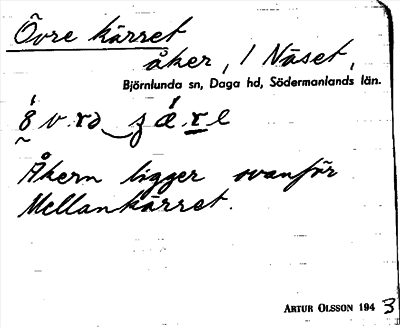 Övre kärret
åker, 1 Näset,
Björnlunda sn, Daga hd, Södermanlands län.
Åkern ligger ovanför
Mellankärret.
ARTUR OLSSON 1943